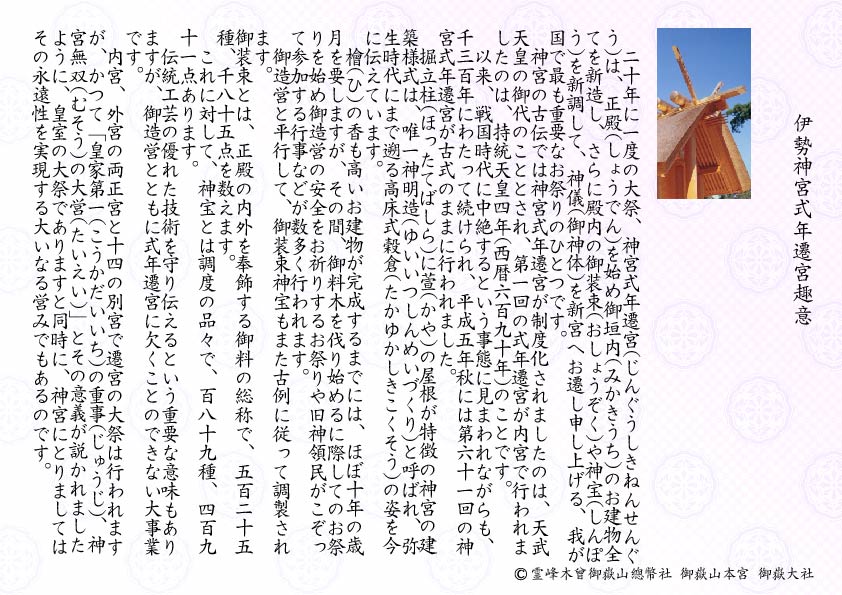 伊勢神宮式年遷宮趣意
二十年に一度の大祭、神宮式年遷宮(じんぐうしきねんせんぐ
う)は、正殿(しょうでん)を始め御垣内(みかきうち)のお建物全
てを新造し、さらに殿内の御装束(おしょうぞく)や神宝(しんぽ
う)を新調して、神儀(御神体)を新宮へお遷し申し上げる、我が
国で最も重要なお祭りのひとつです。
神宮の古伝では神宮式年遷宮が制度化されましたのは、天武
天皇の御代のこととされ、第一回の式年遷宮が内宮で行われま
したのは、持統天皇四年(西暦六百九十年)のことです。
以来、戦国時代に中絶するという事態に見まわれながらも、
千三百年にわたって続けられ、平成五年秋には第六十一回の神
宮式年遷宮が古式のままに行われました。
掘立柱(ほったてばしら)に萱(かや)の屋根が特徴の神宮の建
築様式は、唯一神明造(ゆいいつしんめいづくり)と呼ばれ、弥
生時代にまで遡る高床式穀倉(たかゆかしきこくそう)の姿を今
に伝えています。
檜(ひ)の香も高いお建物が完成するまでには、ほぼ十年の歳
月を要しますが、その間、御料木を伐り始めるに際してのお祭
りを始め御造営の安全をお祈りするお祭りや旧神領民がこぞっ
て参加する行事などが数多く行われます。
御造営と平行して、御装束神宝もまた古例に従って調製され
ます。
御装束とは、正殿の内外を奉飾する御料の総称で、五百二十五
種、千八十五点を数えます。
これに対して、神宝とは調度の品々で、百八十九種、四百九
十一点あります。
伝統工芸の優れた技術を守り伝えるという重要な意味もあり
ますが、御造営とともに式年遷宮に欠くことのできない大事業
です。
内宮、外宮の両正宮と十四の別宮で遷宮の大祭は行われます
が、かつて「皇家第一(こうかだいいち)の重事(じゅうじ)、神
宮無双(むそう)の大営(たいえい)」とその意義が説かれました
ように、皇室の大祭でありますと同時に、神宮にとりましては
その永遠性を実現する大いなる営みでもあるのです。
© 霊峰木曾御嶽山總幣社 御嶽山本宮 御嶽大社